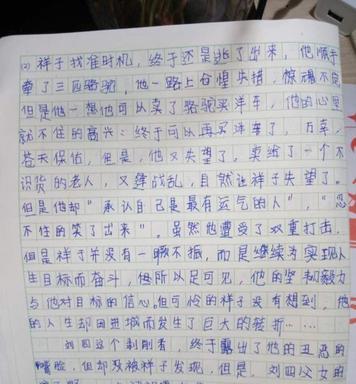 (2) 祥子找准时机，终于还是逃了出来，他顺手
牵了三匹骆驼，他一路上仓惶失措，惊魂不定
但是他一想他可以卖了骆驼买洋车，他的心里
就不住的高兴：终于可以再买洋车了，万幸，
苍天保佑，但是，他又失望了。卖给了一个不
识货的老人，又逢战乱，自然让祥子失望了。
但是他却“承认自己是最有运气的人”，“忍
不住的笑了出来”。虽然他遭受了双重打击，
但是祥子并没有一蹶不振，而是继续为实现人
生目标而奋斗，但所以足可见，他的坚韧毅力
与他对目标的信心，但可怜的祥子没有想到，他
的人生却因进城而发生了巨大的转折……
刘四这个剥削者，终于露出了他的丑恶的
嘴脸，但却没被祥子发现，但是，刘四父女的